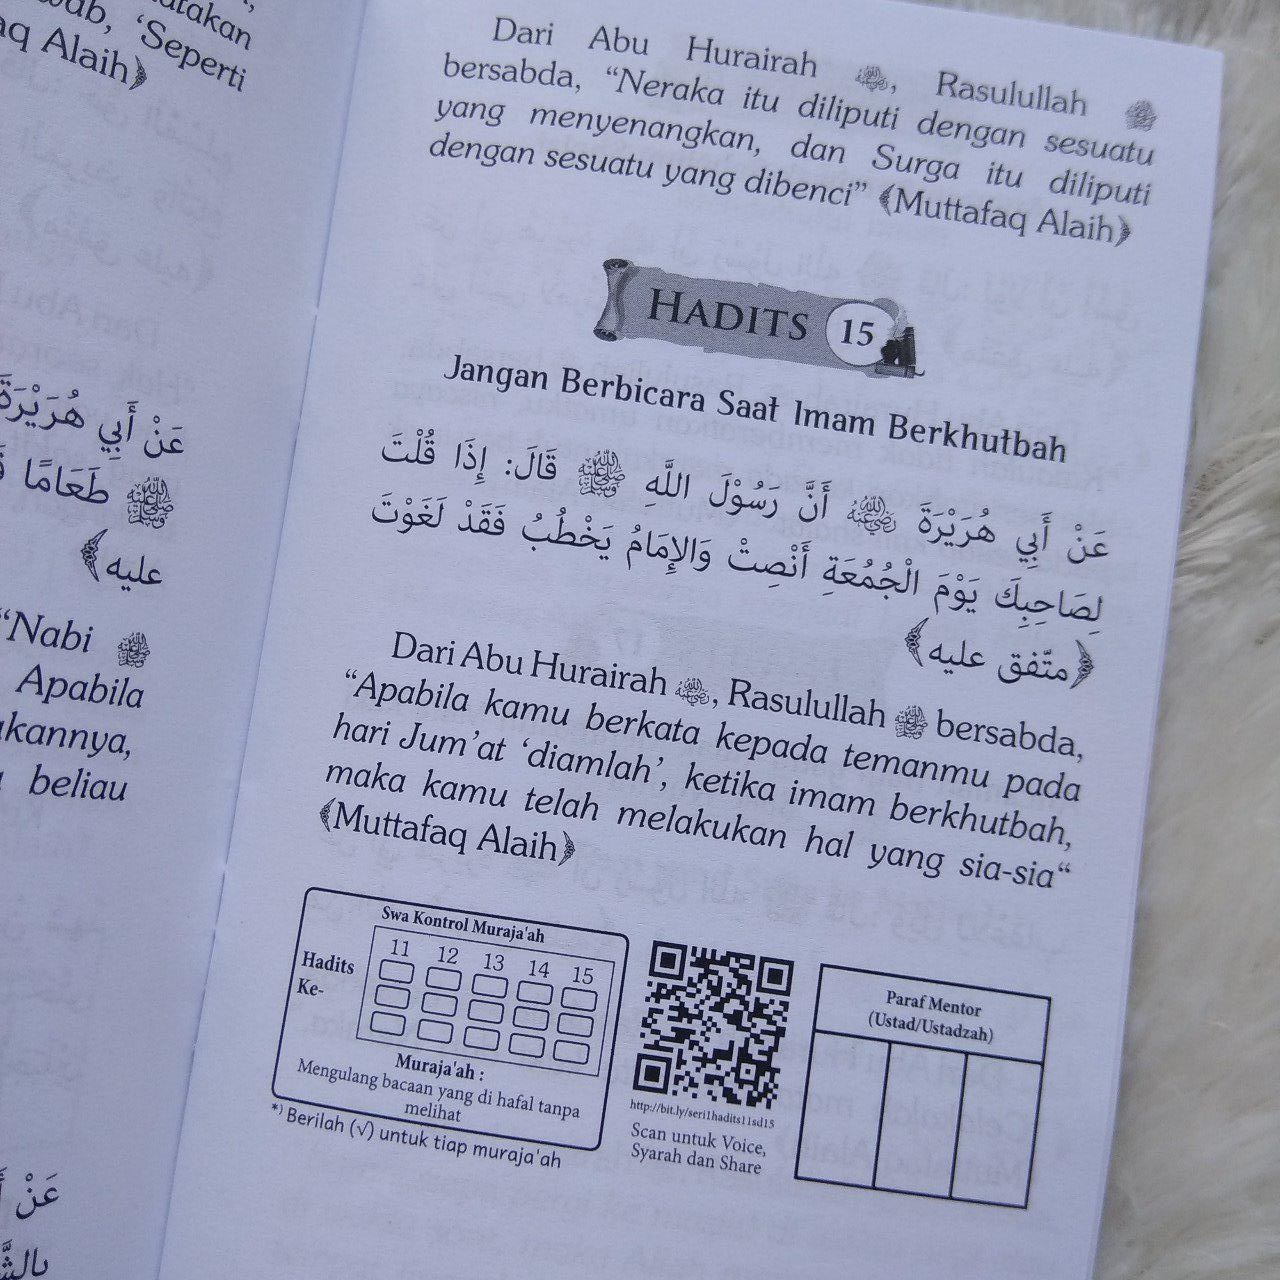 atakan
wab, ‘Seperti
aq Alaih﴿
عَنْ أَبِي هُرَيْرَةَ
ﷺ طَعَامًا
عليه﴾
“Nabi ﷺ
Apabila
kannya,
beliau
عَنْ
Dari Abu Hurairah , Rasulullah ﷺ
bersabda, “Neraka itu diliputi dengan sesuatu
yang menyenangkan, dan Surga itu diliputi
dengan sesuatu yang dibenci” ﴾Muttafaq Alaih﴿
HADITS 15
Jangan Berbicara Saat Imam Berkhutbah
عَنْ أَبِي هُرَيْرَةَ أَنَّ رَسُوْلَ اللَّهِ ﷺ قَالَ: إِذَا قُلْتَ
لِصَاحِبِكَ يَوْمَ الْجُمُعَةِ أَنْصِتْ وَالإِمَامُ يَخْطُبُ فَقَدْ لَغَوْتَ
﴿متّفق عليه﴾
Dari Abu Hurairah , Rasulullah ﷺ bersabda,
“Apabila kamu berkata kepada temanmu pada
hari Jum’at ‘diamlah’, ketika imam berkhutbah,
maka kamu telah melakukan hal yang sia-sia“
﴾Muttafaq Alaih﴿
Swa Kontrol Muraja'ah
Hadits Ke-
11 12 13 14 15
Muraja'ah :
Mengulang bacaan yang di hafal tanpa
melihat
*) Berilah (√) untuk tiap muraja'ah
http://bit.ly/seri1hadits11sd15
Scan untuk Voice,
Syarah dan Share
Paraf Mentor
(Ustad/Ustadzah)